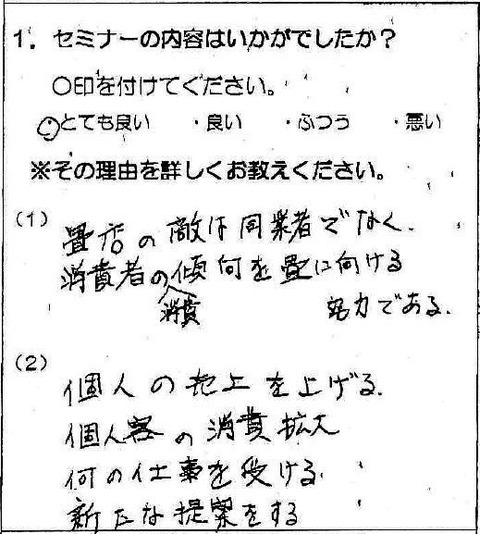 1. セミナーの内容はいかがでしたか？
○印を付けてください。
・とても良い ・良い ・ふつう ・悪い
※その理由を詳しくお教えください。
(1) 畳店の敵は同業者でなく、
消費者の傾向を畳に向ける
消費 努力である。
(2) 個人の売上を上げる。
個人客の消費拡大
何の仕事を受ける。
新たな提案をする